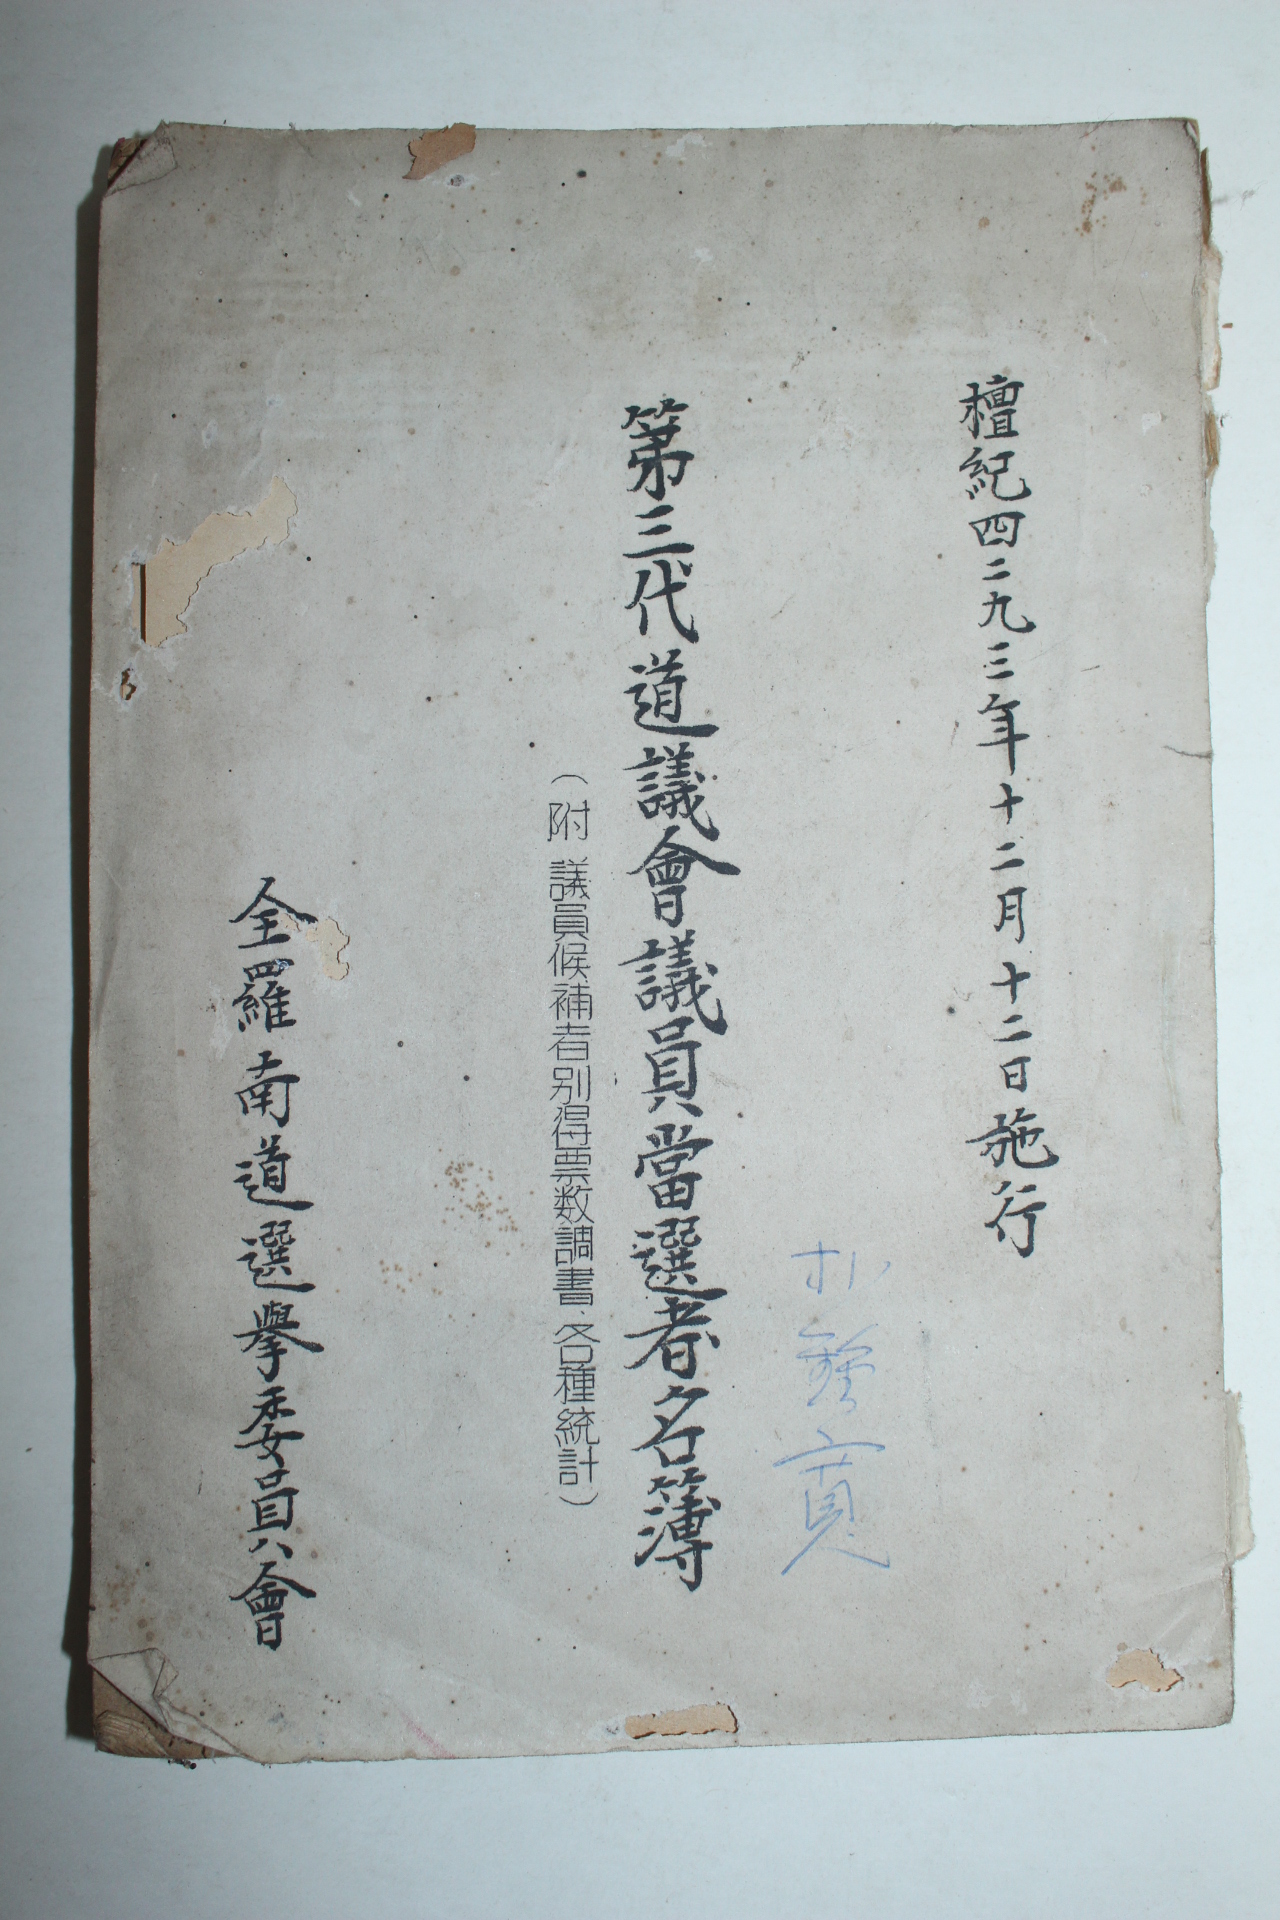 檀紀四二九三年十二月十二日施行
第三代道議會議員當選者名簿
(附 議員候補者別得票数調書、各種統計)
全羅南道選擧委員會